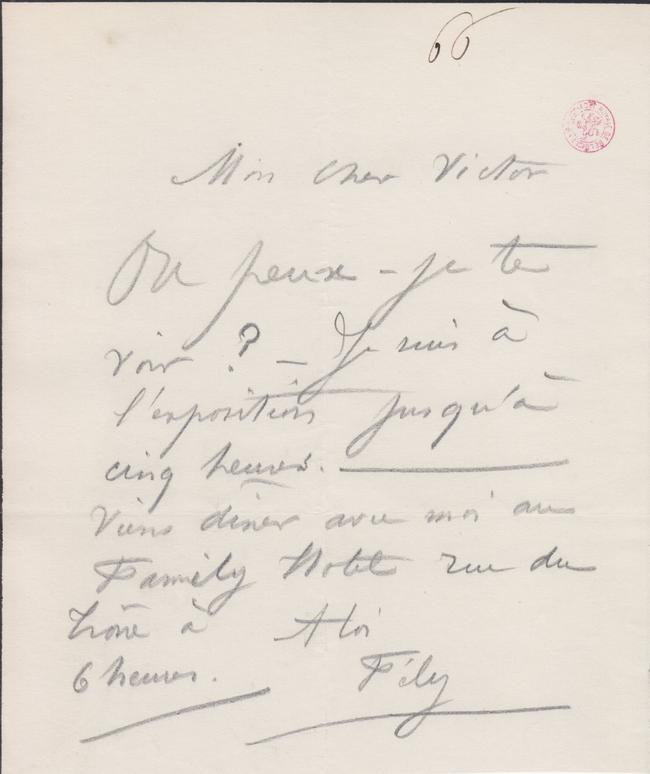 66
Mon cher Victor
Ou peux-je te
voir ? — Je suis à
l'exposition jusqu'à
cinq heures. —
Viens dîner avec moi au
Family Hotel rue du
Trône à A toi
6 heures. Fély